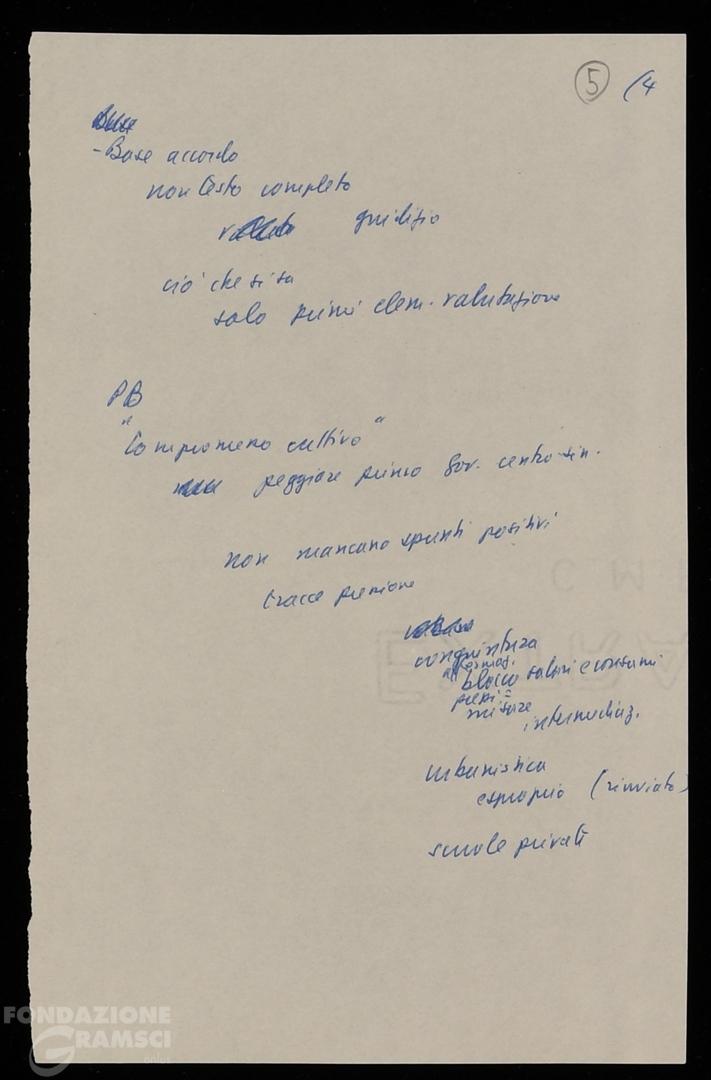 5 (4
Base
- Base accordo
non testo completo
giudizio
ciò che si sa
solo primi elem. valutazione
PB
"Compromesso cattivo"
peggiore primo Gov. centro-sin.
non mancano spunti positivi
tracce pressione
congiuntura
blocco salari e consumi
prezzi =
misure
intermediaz.
urbanistica
esproprio (rinviato)
scuole private
FONDAZIONE
GRAMSCI
onlus